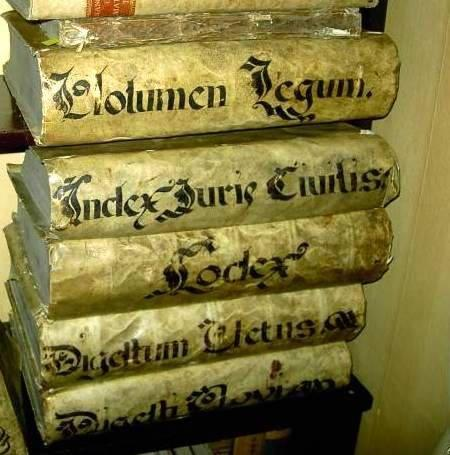 Volumen Legum.
Index Juris Civilis
Codex
Digestum Vetus
Digesti Novum